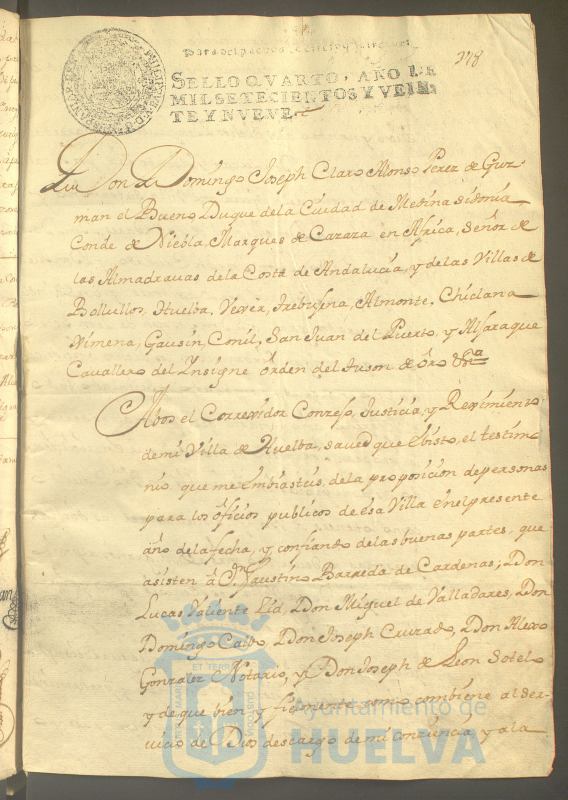 278
SELLO QVARTO, AÑO DE
MIL SETECIENTOS Y VEIN
TE Y NVEVE.
Don Domingo Joseph Claro Alonso Perez de Guz-
man el Bueno Duque de la Ciudad de Medina sidonia
Conde de Niebla, Marques de Cazaza en Africa, Señor de
las Almadravas de la Costa de Andalucia, y de las Villas de
Bollullos, Huelba, Vexer, Trebuxena, Almonte, Chiclana
Ximena, Gausin, Conil, San Juan del Puerto, y Alfaraque
Cavallero del Insigne orden del tuson de oro
A bos el Correxidor Conzejo, Justicia, y Reximiento
de mi Villa de Huelba, saved que e bisto, el testimo
nio que me embiasteis, de la proposicion de personas
para los oficios publicos de esa Villa en el presente
año de la fecha, y confiando de las buenas partes, que
asisten á Dn Faustino Barreda de Cardenas; Don
Lucas Valiente Lid, Don Miguel de Valladares, Don
Domingo Calbo, Don Joseph Cruzado, Don Alexo
Gonzalez Notario, y Don Joseph de Leon Sotelo
y de que bien y fielmente como combiene al ser-
uicio de Dios descargo de mi conziencia, y a la
Ayuntamiento de
HUELVA